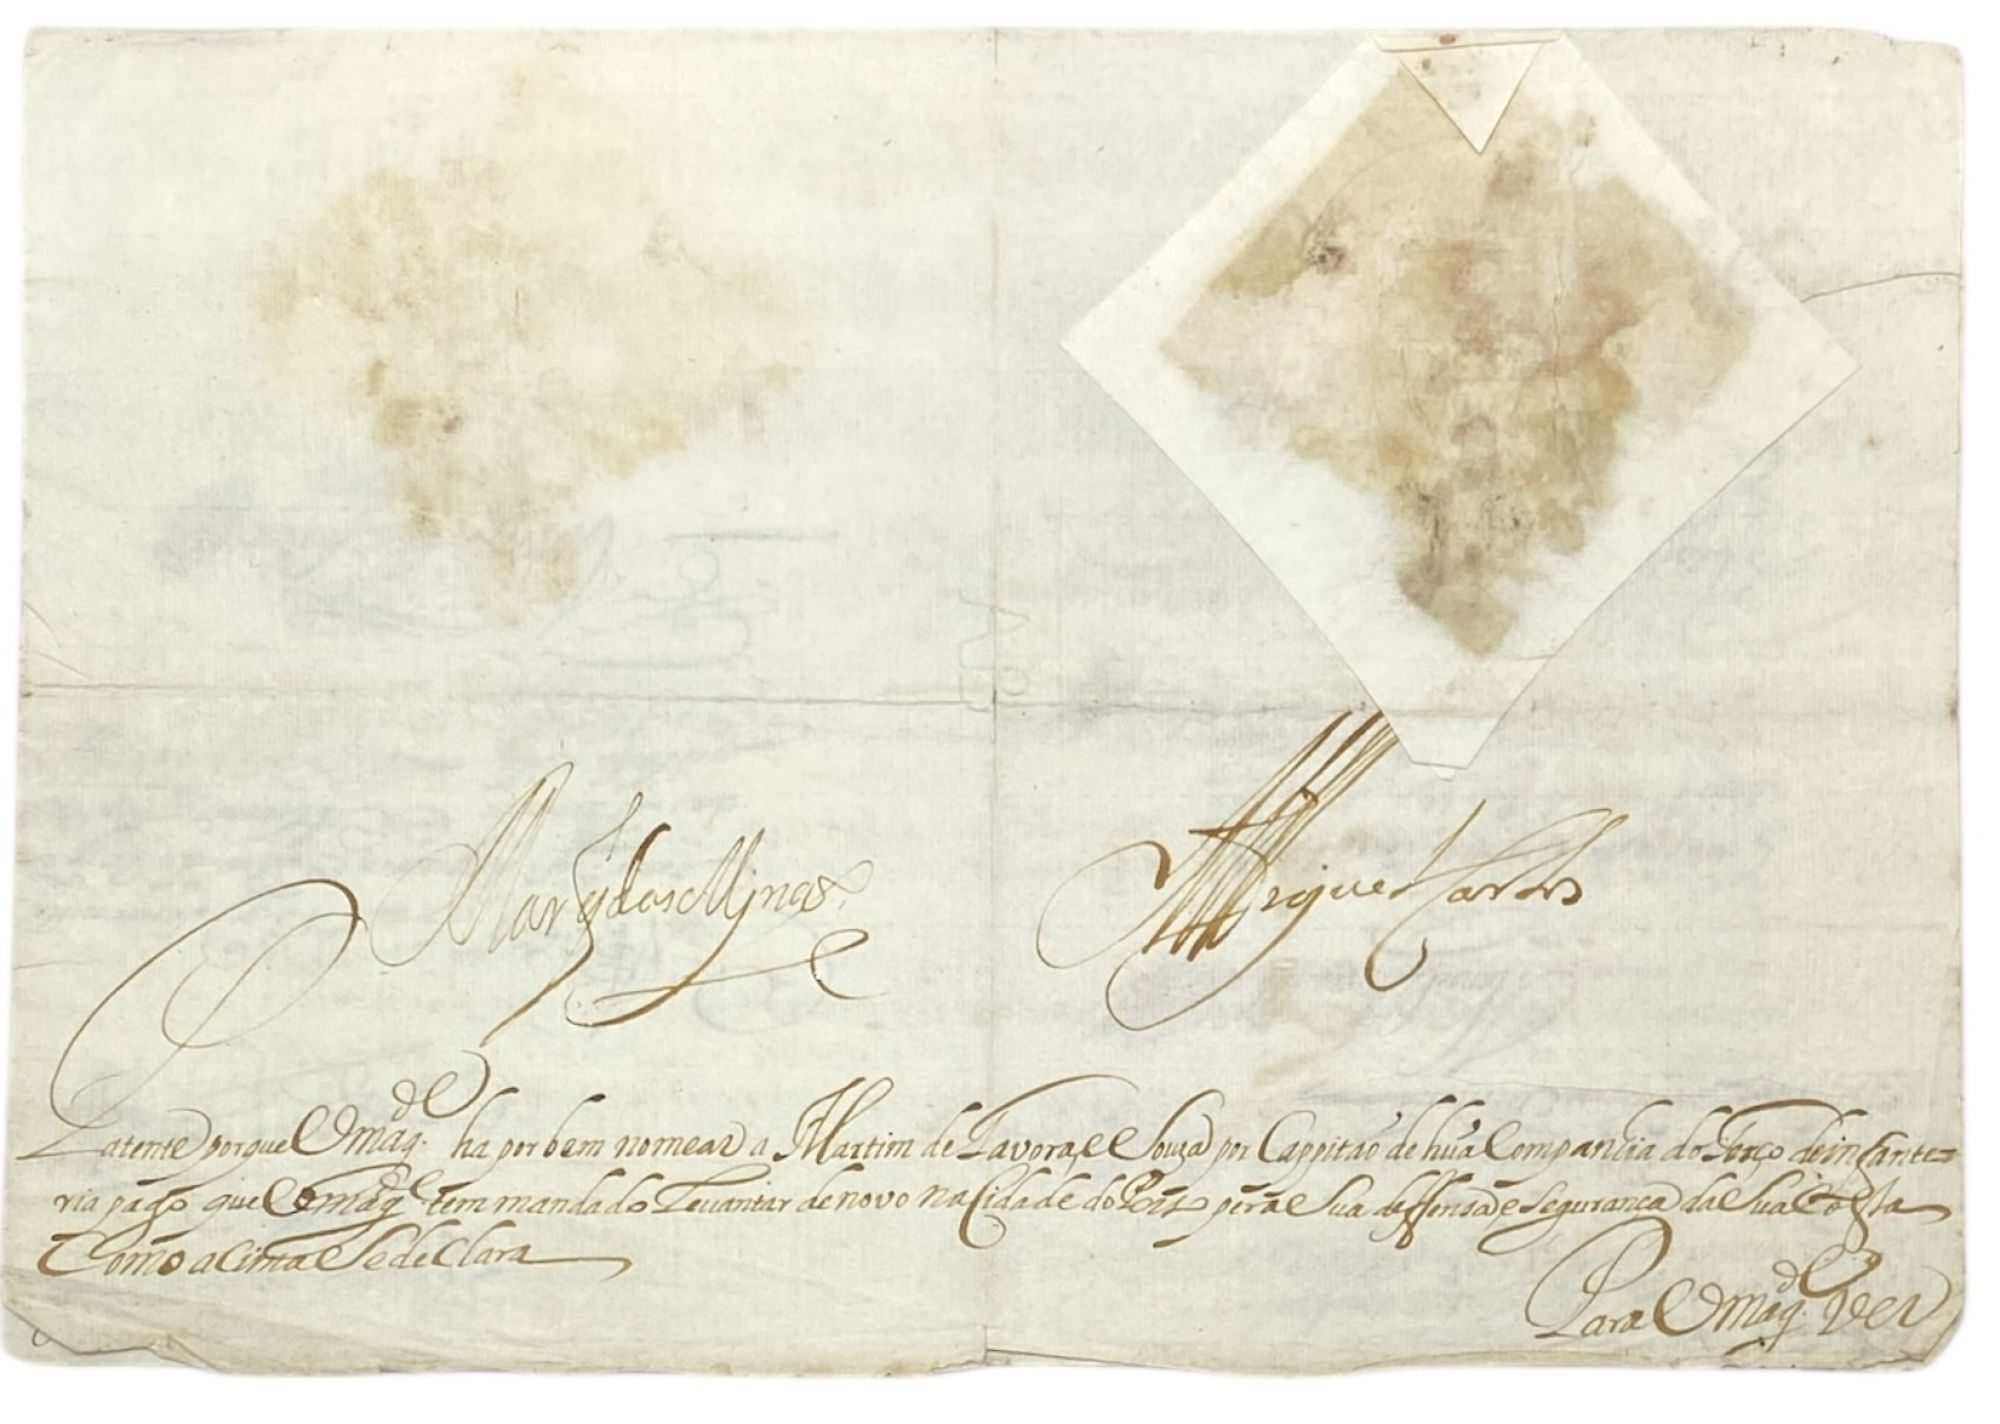 Marqs das Minas
Miguel Carlos
Patente porque V Magde ha por bem nomear a Martim de Tavora, e Souza por Cappitaõ de huá Companhia do Terço de infante=
ria pago que V Magde tem mandado Levantar de novo na Cidade do Porto pera Sua deffensa, e Segurança da Sua Costa
Como aCima Se deClara
Para V Magde ver